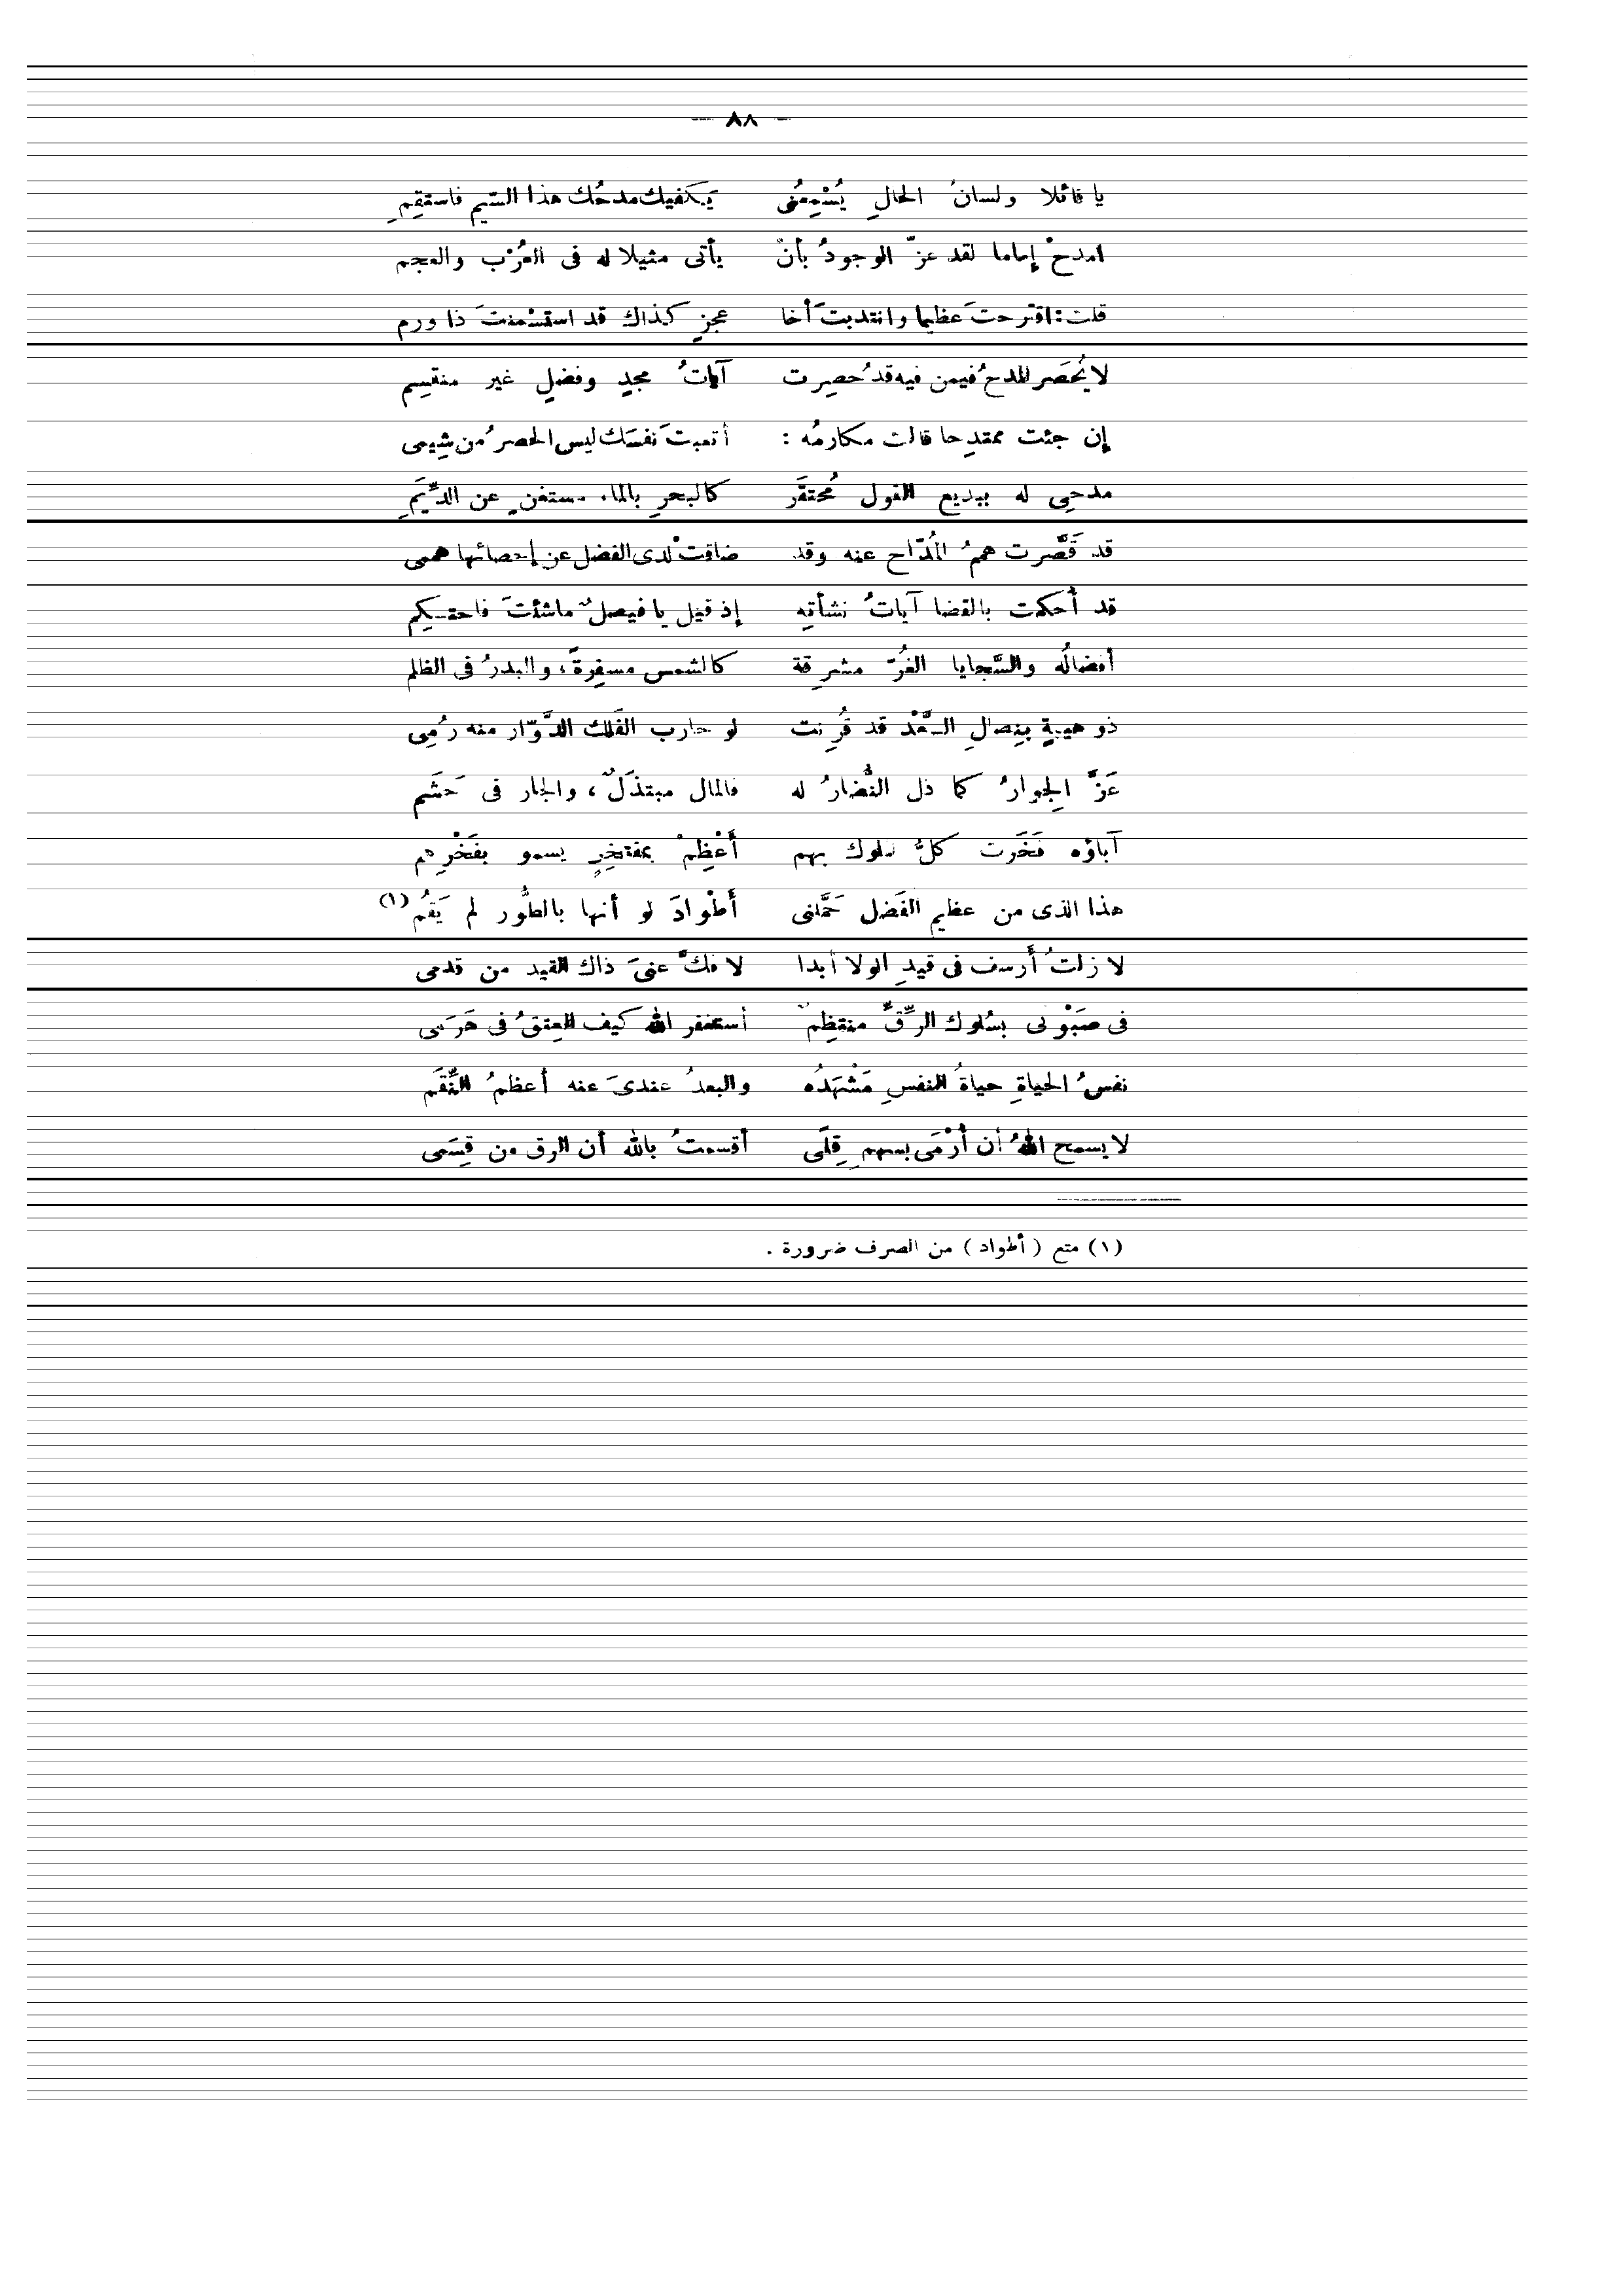 — ٨٨ —
يا قائلا ولسانُ الحالِ يُسْمِعُنى يَكفيك مدحُك هذا السّيم فاستقِمِ
امدحْ إماما لقد عزّ الوجودُ بأنْ يأتى مثيلا له فى العُرْب والعجم
قلت: اقترحتَ عظيما وانتدبتَ أخا عجزٍ كذاك قد استسْمنتَ ذا ورم
لا يُحصَر المدحُ فيمن فيه قد حُصِرت آياتُ مجدٍ وفضلٍ غير منقسِم
إن جئت ممتدِحا قالت مكارمُه : أتعبتَ نفسَك ليس الحصرُ من شِيمى
مدحِى له ببديع القول مُحتقَر كالبحرِ بالماء مستغنٍ عن الدِّيَمِ
قد قَصَّرت هممُ المُدّاح عنه وقد ضاقتْ لدى الفضل عن إحصائها هممى
قد أُحكمت بالقضا آياتُ نشأتِه إذ قيل يا فيصلٌ ماشئتَ فاحتكِم
أفضالُه والسَّجايا الغُرّ مشرِقة كالشمس مسفِرةً، والبدرُ فى الظلم
ذو هيبةٍ بنِصالِ السَّعْد قد قُرِنت لو حارب الفَلك الدَّوّار منه رُمِى
عَزَّ الجِوارُ كما ذل النُّضارُ له فالمال مبتذَلٌ، والجار فى حَشَم
آباؤه فَخَرت كلُّ الملوك بهم أَعْظِمْ بمفتخِرٍ يسمو بفَخْرِهم
هذا الذى من عظيم الفَضل حَمَّلنى أَطْوادَ لو أنها بالطُّور لم يَقُمُ (١)
لا زلتُ أرسف فى قيدِ الولا أبدا لا فكَّ عنىَ ذاك القيد من قدمى
فى صَبْوتى بسُلوك الرِّقِّ منتظِمٌ أستغفر الله كيف العِتقُ فى هَرَمى
نفسُ الحياةِ حياةُ النفسِ مَشْهَدُه والبعدُ عندىَ عنه أعظمُ النِّقَم
لا يسمح اللهُ أن أُرْمَى بسهمِ قِلًى أقسمتُ بالله أن الرق من قِسَمى
(١) منع ( أطواد ) من الصرف ضرورة .